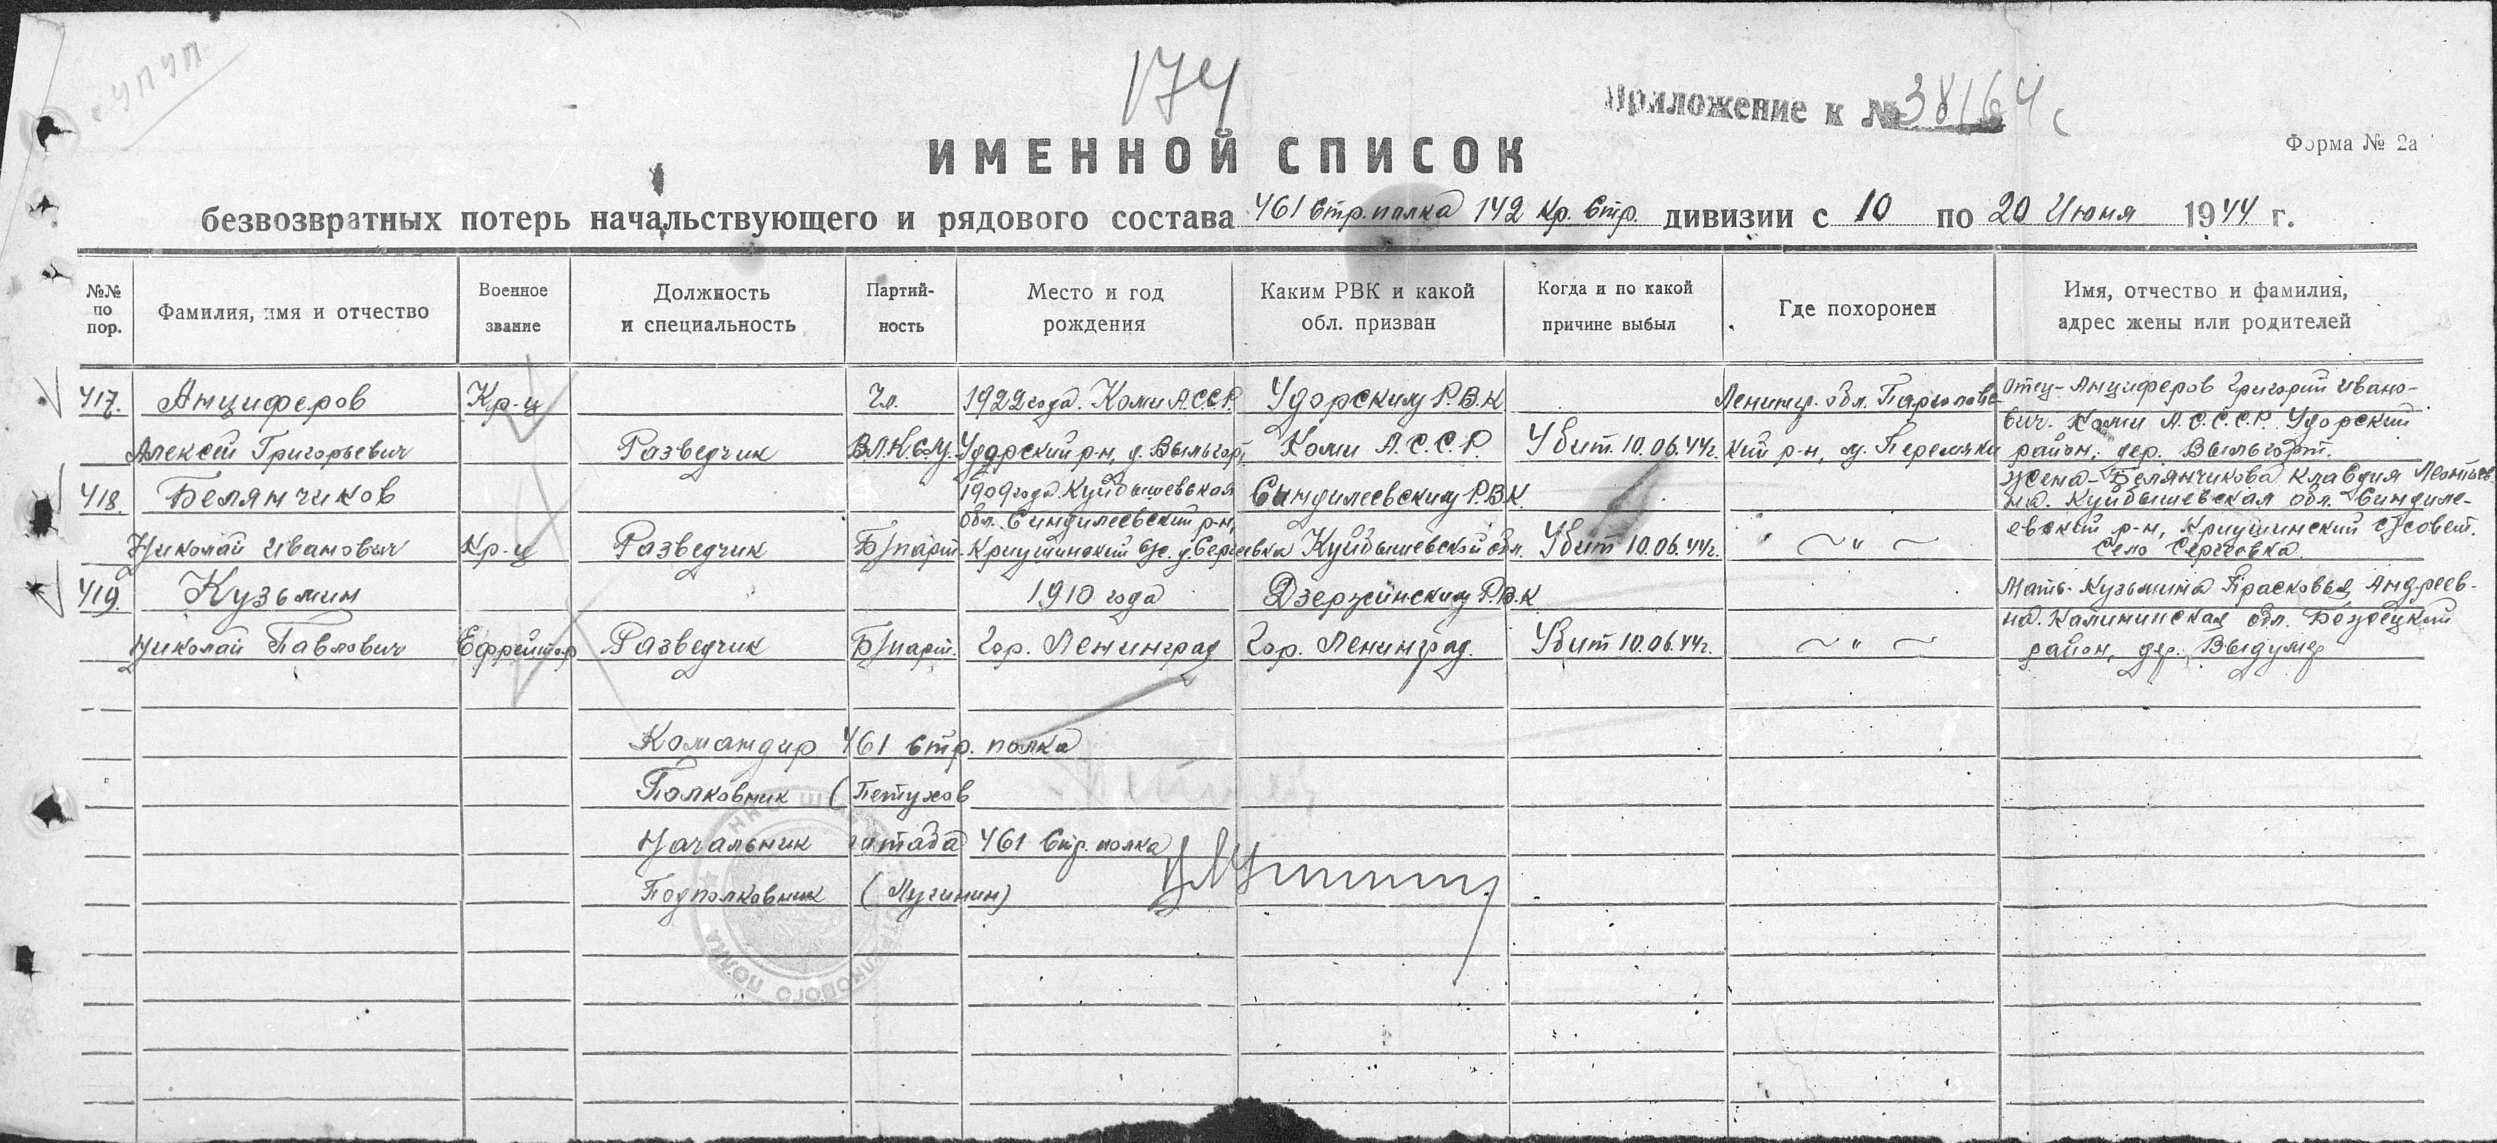 174
Приложение к № 38164с
Форма № 2а
ИМЕННОЙ СПИСОК
безвозвратных потерь начальствующего и рядового состава 461 Стр. полка 142 Кр. Стр. дивизии с 10 по 20 Июня 1944 г.
№№ по пор.
Фамилия, имя и отчество
Военное звание
Должность и специальность
Партийность
Место и год рождения
Каким РВК и какой обл. призван
Когда и по какой причине выбыл
Где похоронен
Имя, отчество и фамилия, адрес жены или родителей
417. Анциферов Кр-ц Чл. 1922 года. Коми А.С.С.Р. Удорским Р.В.К Ленингр. обл. Парголовс- Отец - Анциферов Григорий Ивано-
вич. Коми А.С.С.Р. Удорский
Алексей Григорьевич Разведчик ВЛКСМ. Удорский р-н, д. Выльгорт, Коми А.С.С.Р. Убит 10.06.44г. кий р-н, м. Перемяки район, дер. Выльгорт.
418. Белянчиков 1909 года Куйбышевская Сингилеевским Р.В.К. Жена - Белянчикова Клавдия Леонтьев-
на. Куйбышевская обл. Сингиле-
обл. Сингилеевский р-н, евский р-н, Криушинский с/совет.
Николай Иванович Кр-ц Разведчик Б/парт. Криушинский с/с. д. Сергеевка Куйбышевской обл. Убит 10.06.44г. — " — Село Сергеевка.
419. Кузьмин 1910 года Дзержинским Р.В.К Мать - Кузьмина Прасковья Андреев-
на. Калининская обл. Бежецкий
Николай Павлович Ефрейтор Разведчик Б/парт. Гор. Ленинград Гор. Ленинград. Убит 10.06.44г. — " — район, дер.
Командир 461 стр. полка
Полковник (Петухов
Начальник штаба 461 Стр. полка
Подполковник (Лучинин)
СТРЕЛКОВОГО ПОЛКА